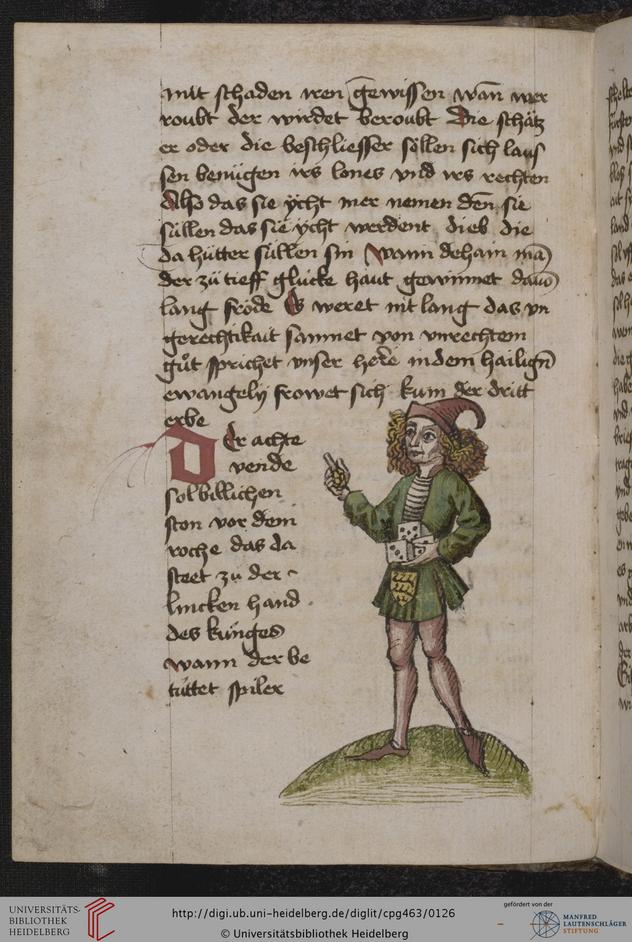 mit schaden iren gewissen wān wer
roubt der wirdet beroubt Die schätz
er oder die beschliesser söllen sich lauſ
sen benügen irs lones vnd irs rechten
Also das sie ÿcht mer nemen den̄ sie
süllen das sie ÿcht werdent dieb die
da hütter süllen sin Wann dehain mā
der zü tieff glücke haut gewinnet dauō
lang fröde Es weret nit lang das vn
gerechtikait samnet von vnrechtem
gůt sprichet vnser herre in dem hailign̄
ewangelÿ frowet sich kum der dritt
erbe
Der achte
vende
sol billichen
ston vor dem
roche das da
steet zü der
lincken hand
des künges
wann der be
tüttet spiler
UNIVERSITÄTS-
BIBLIOTHEK
HEIDELBERG
http://digi.ub.uni-heidelberg.de/diglit/cpg463/0126
© Universitätsbibliothek Heidelberg
gefördert von der
MANFRED
LAUTENSCHLÄGER
STIFTUNG